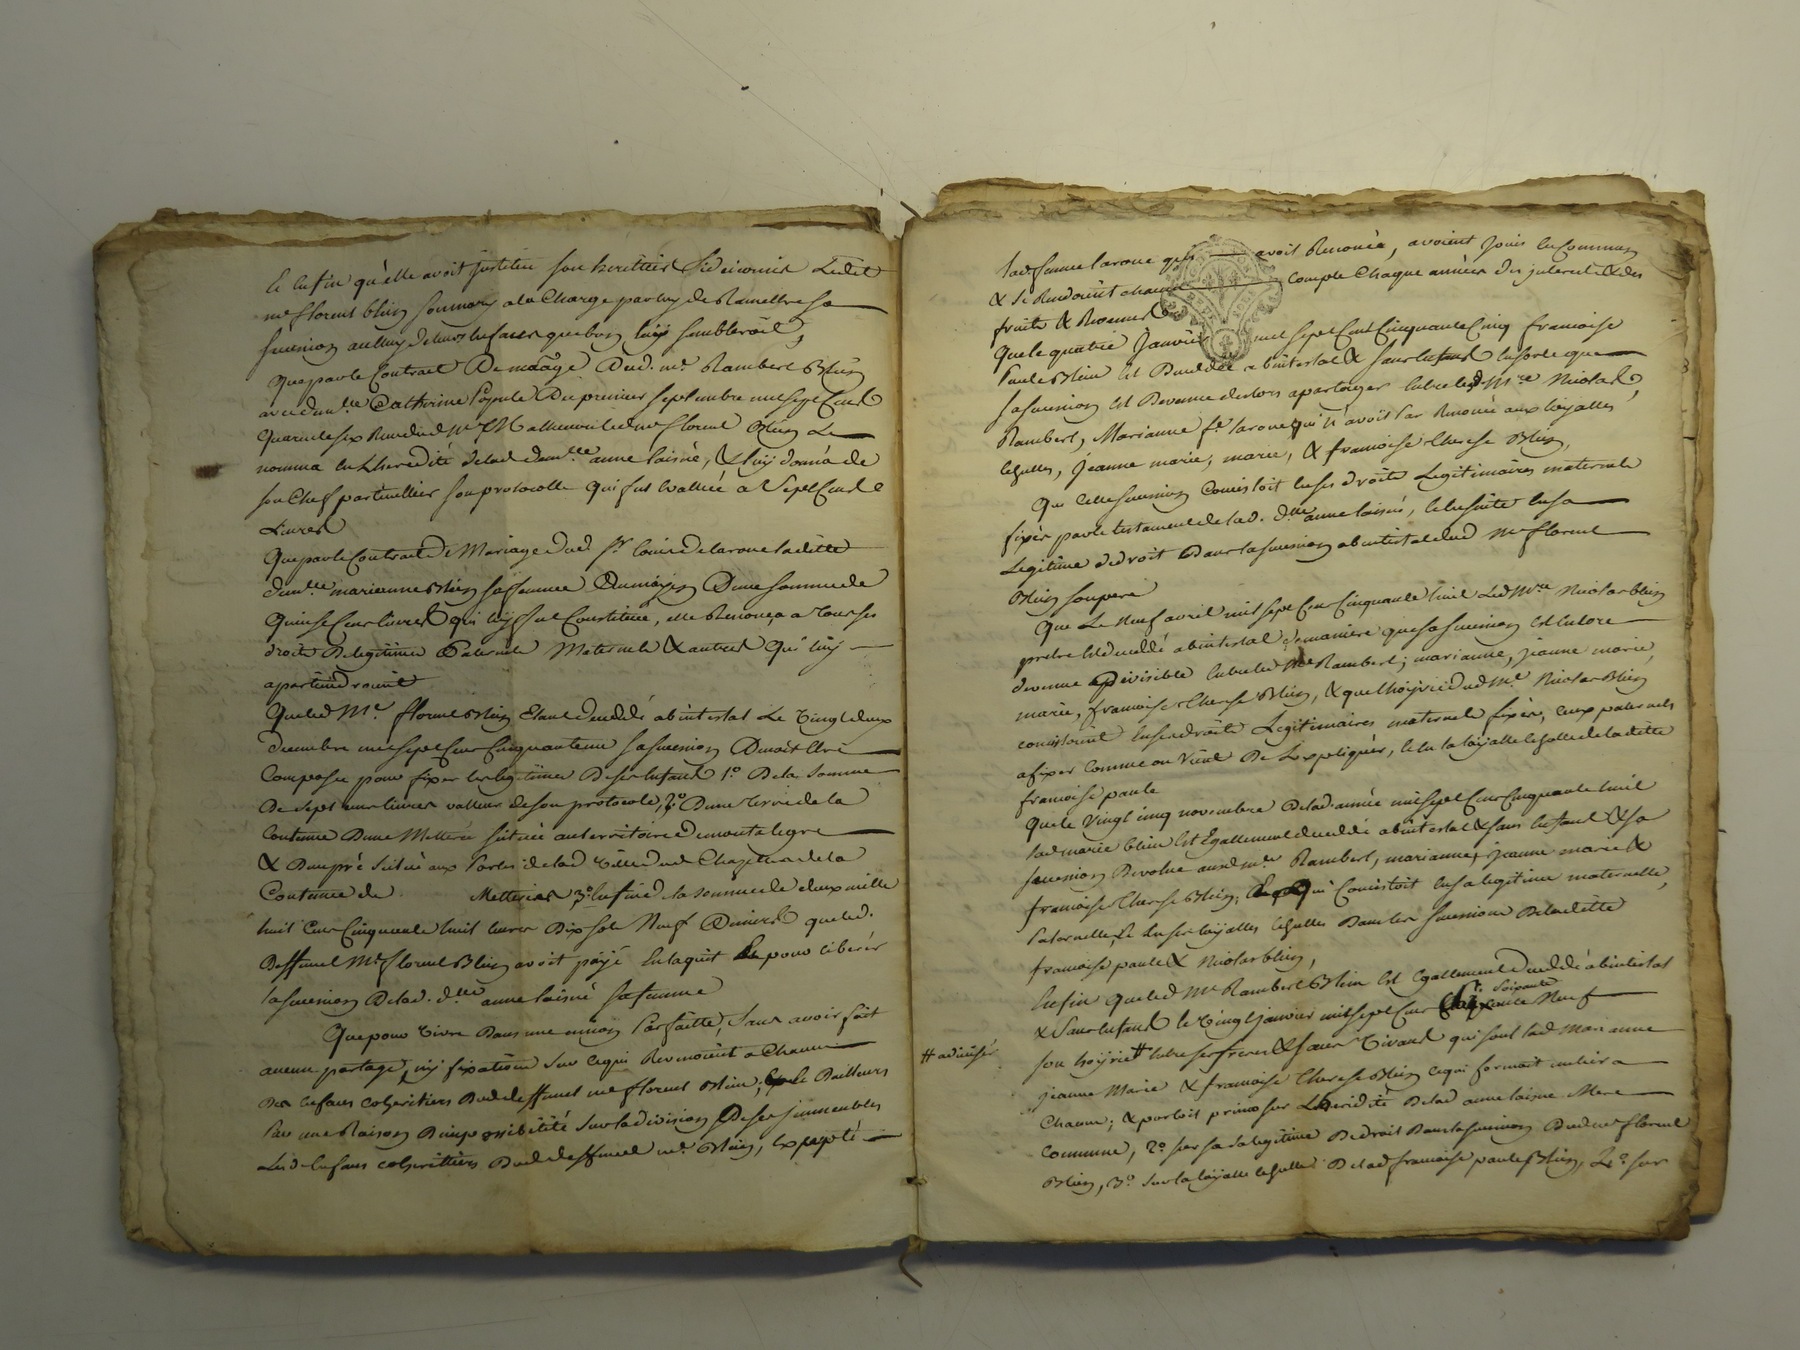 Et enfin qu'elle avoit institué son heritier fideicomis Ledit
me florent blein son mary a la Charge par luy de Remettre sa
succession au luy de leurs enfans que bon luy sembleroit,
Que par le Contract De mariage Dud. me. Rambert Blein
avec dam.lle Catherine Du premier septembre mil sept Cent
quarente six Rendu led me florent Blein Le
nomma en Lheredité de lad dam.lle anne lainé, & luy donna de
son Chef particullier son protocolle qui fut Evallüé a Sept Cent
Livres
Que par le Contract de Mariage dud sr. de laroue ladite
dam.lle marianne Blein sa femme Du moyen D'une somme de
Quinse Cent livres qui luy fut Constituée, elle Renonça a tous ses
droits De legitime Paternelle Maternelle & autres Qui luy
apartiendroient
Que led Me. florent Blein Etant deceddé abintestat Le vingt deux
decembre mil sept Cent Cinquante un sa succession Devoit etre
Composée pour fixer les legitimes De ses enfans 1.o De la somme
De sept cent livres valleur de son protocole, 2.o D'une terre de la
Contenue D'une Metterée située au territoire de montalegre
& D'un pré situé aux Portes de lad Ville dud Chazelles de la
Contenue de Metterées 3.o Enfin de la somme de deux mille
huit Cent Cinquante huit livres Dix sols Neuf Deniers que led.
Deffunt Me. florent Blein avoit payé En laquit pour liberer
la succession De lad. d.lle anne lainé sa femme
Que pour vivre Dans une union Parfaitte, sans avoir fait
aucun partage, ny fixation sur ce qui Revenoient a Chacun
Des enfans coheritiers Dud deffunt me florent Blein, Et Le D'ailleurs
Par une Raison D'impossibilité sur la division De ses immeubles
Lesd. Enfans coheritiers Dud deffunt me. Blein, Excepté
lad femme laroue qui avoit Renoncé, avoient Jouis En Commun
& se Rendoient chacun compte Chaque années des interets & des
fruits & Revenus
Que le quatre Janvier mil sept Cent Cinquante Cinq francoise
Paule Blein Est Deceddée abintestat & sans Enfans En sorte que
sa succession Est Devenue des lors a partager Entre lesd Mre. Nicolas,
Rambert, Marianne fe. laroue qui n'avoit Pas Renoncé aux loyalles
Echuttes, Jeanne marie, marie, & francoise Therese Blein,
Que cette succession Consistoit En ses droits Legitimaires maternels
fixés par le testament de lad. d.lle anne lainé, & Ensuite En sa
Legitime de droit Dans la succession abintestat dud Me florent
Blein son pere
Que Le Neuf avril mil sept Cent Cinquante huit Led Mre Nicolas blein
prestre Est deceddé abintestat de maniere que sa succession Est Encore
devenue divisible Entre led Me Rambert, marianne, jeanne marie,
marie, francoise Therese Blein, & que L'hoyrie dud Me. Nicolas Blein
consistoient En ses droits Legitimaires maternels fixés, ceux paternels
a fixer comme on vient De L'expliquer, Et En la loyalle Echutte de ladite
francoise paule
Que le vingt cinq novembre De lad année mil sept Cent Cinquante huit
lad marie blein Est Egallement deceddée abintestat & sans Enfans & sa
succession Devolue aux d me Rambert, marianne, jeanne marie &
francoise Therese Blein, Ce qui Consistoit En sa legitime maternelle,
Paternelle, & En ses loyalles Echuttes Dans les successions De ladite
francoise paule & Nicolas blein,
Enfin que led Me Rambert Blein Est Egallement deceddé abintestat
soixante
& sans Enfans le vingt Janvier mil sept Cent Neuf
# a diviser
son hoyrie # Entre ses freres & sœurs vivants qui sont lad Marianne
jeanne Marie & francoise Therese Blein ce qui formoit un tiers a
Chacune, & portoit primo sur Lheredité De lad anne lainé Mere
Commune, 2.o sur sa legitime De droit Dans la succession Dud me florent
Blein, 3.o sur la loyalle Echutte De lad francoise paule Blein, 4.o sur